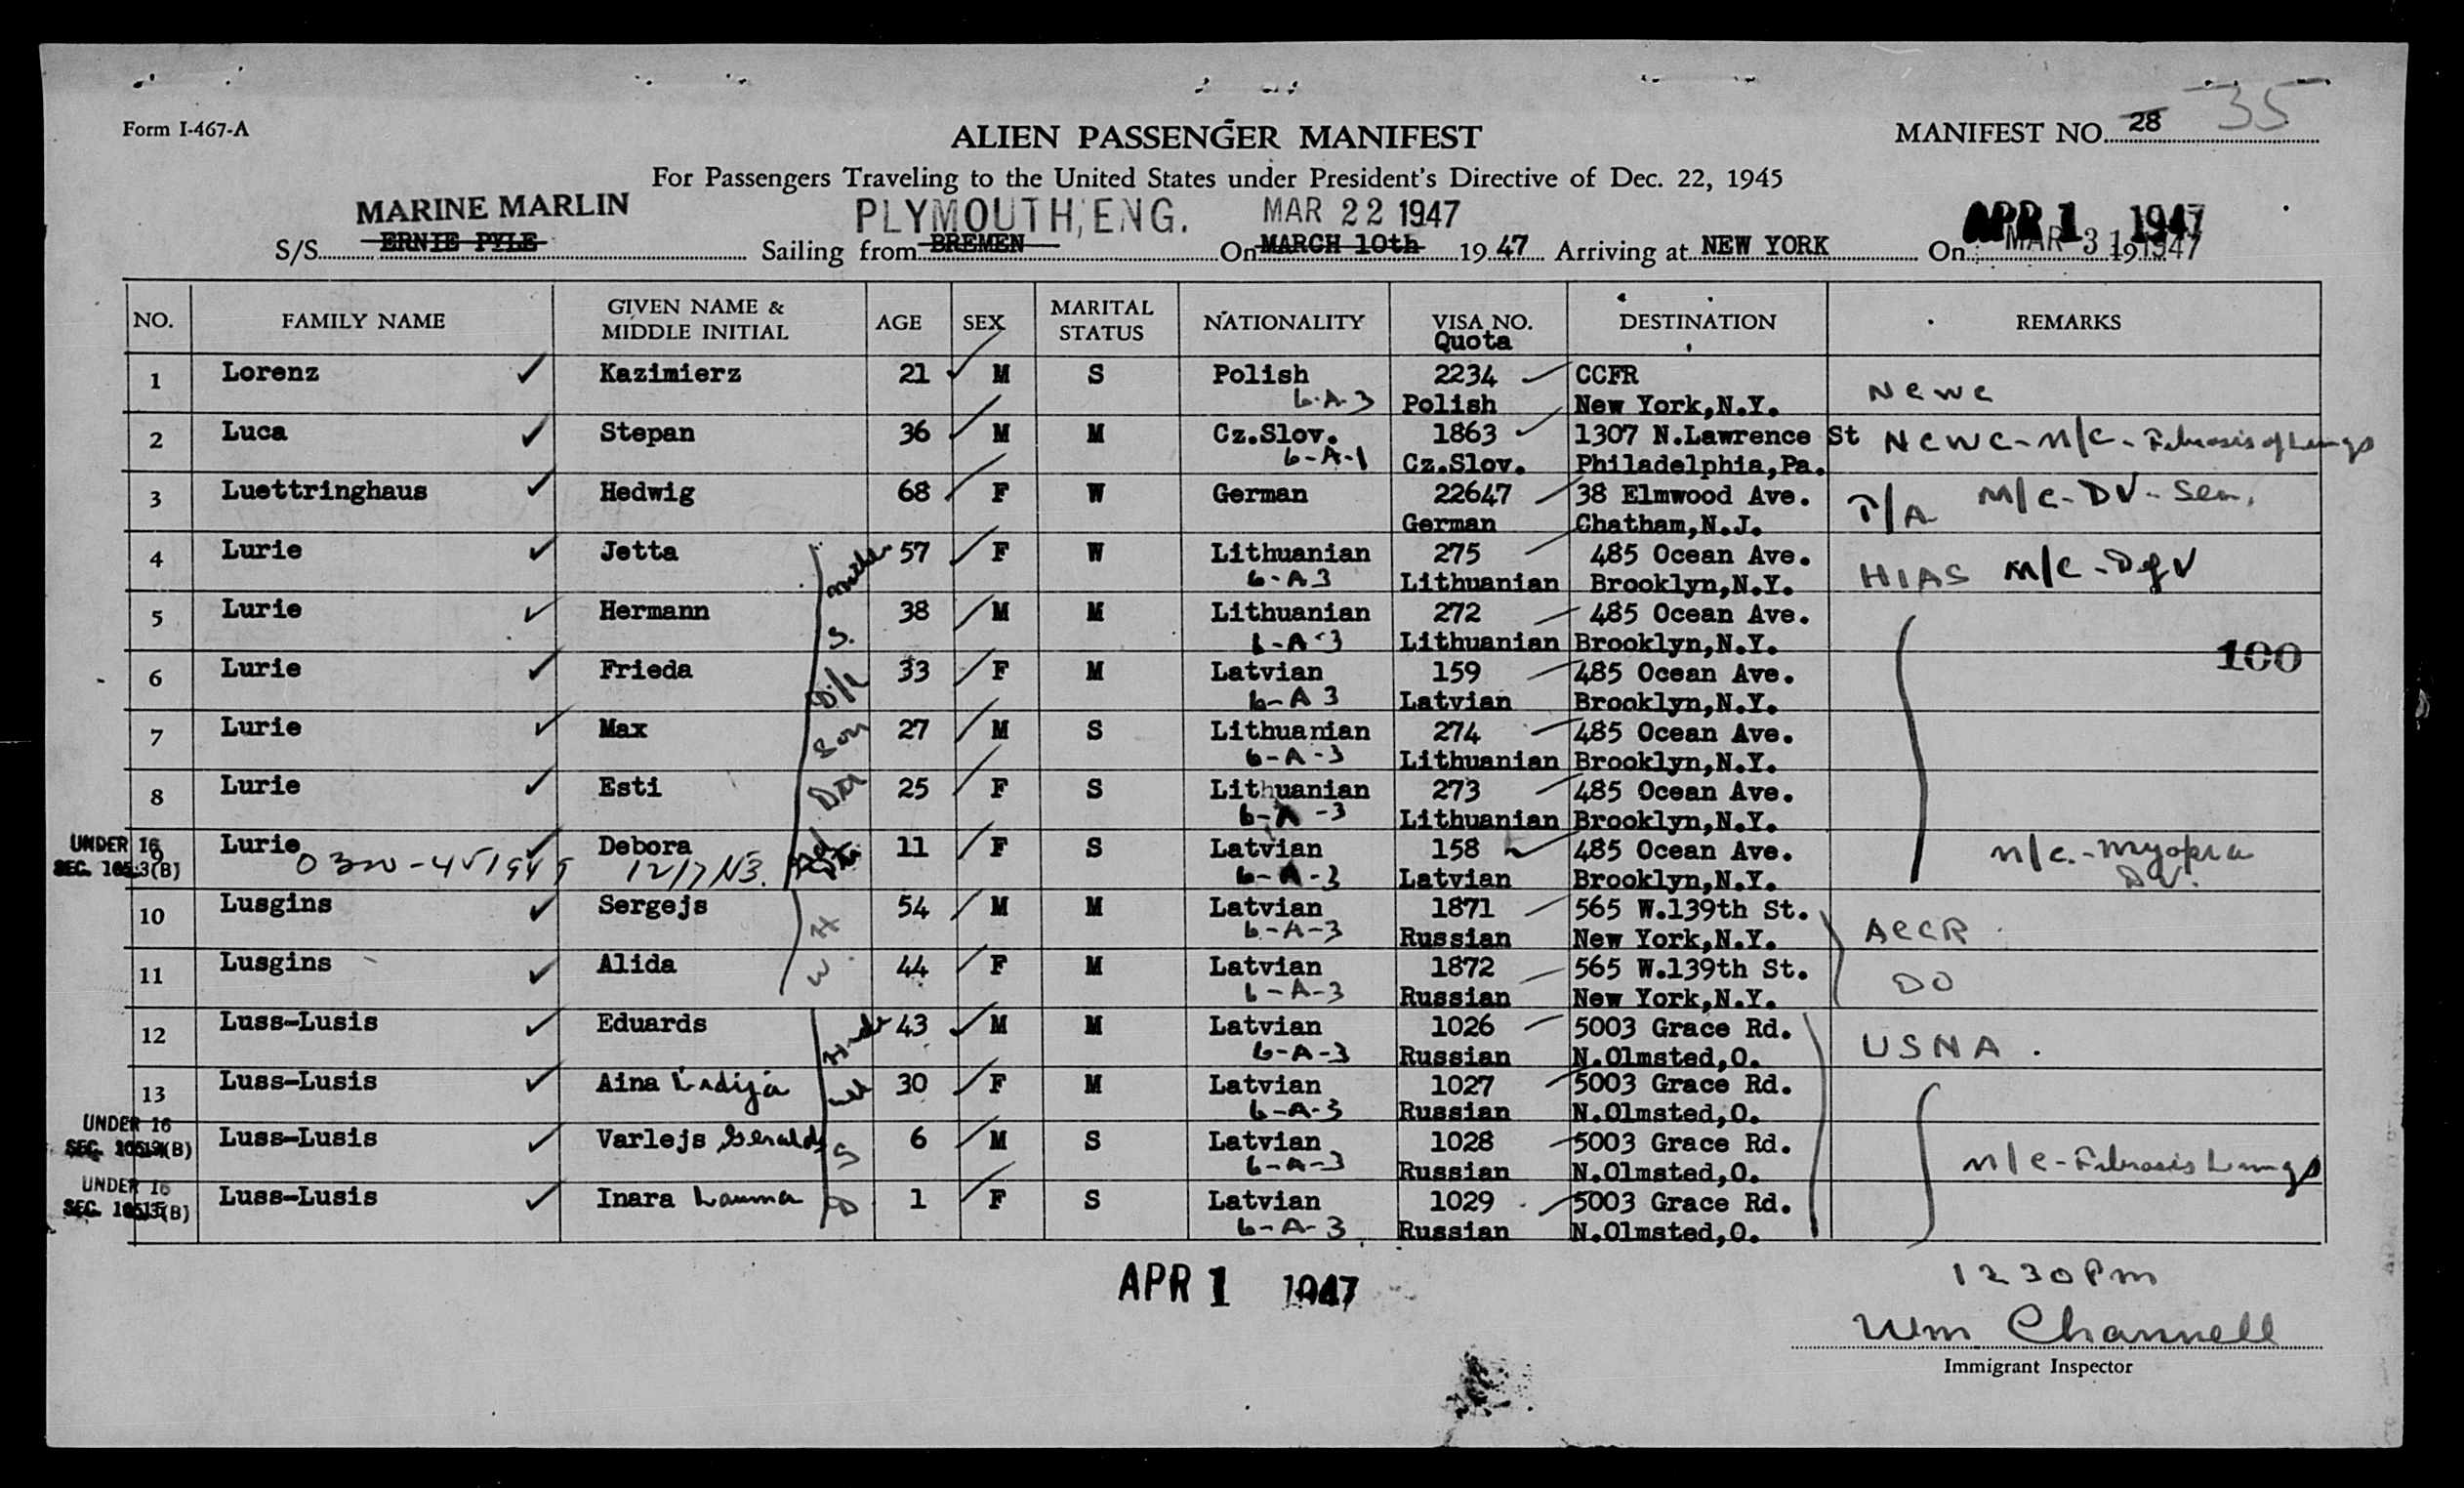 Form I-467-A
ALIEN PASSENGER MANIFEST
MANIFEST NO. 28 35
For Passengers Traveling to the United States under President's Directive of Dec. 22, 1945
MARINE MARLIN PLYMOUTH, ENG. MAR 22 1947 APR 1 1947
S/S ERNIE PYLE Sailing from BREMEN On MARCH 10th 19 47 Arriving at NEW YORK On MAR 31 1947
NO. FAMILY NAME GIVEN NAME & MIDDLE INITIAL AGE SEX MARITAL STATUS NATIONALITY VISA NO. Quota DESTINATION REMARKS
1 Lorenz Kazimierz 21 M S Polish 2234 CCFR
6-A-3 Polish New York,N.Y. NCWC
2 Luca Stepan 36 M M Cz.Slov. 1863 1307 N.Lawrence St NCWC-M/C-Fibrosis of Lungs
6-A-1 Cz.Slov. Philadelphia,Pa.
3 Luettringhaus Hedwig 68 F W German 22647 38 Elmwood Ave. M/C-DV-Sen.
German Chatham,N.J. T/A
4 Lurie Jetta mother 57 F W Lithuanian 275 485 Ocean Ave.
6-A3 Lithuanian Brooklyn,N.Y. HIAS M/C-
5 Lurie Hermann S. 38 M M Lithuanian 272 485 Ocean Ave.
6-A-3 Lithuanian Brooklyn,N.Y.
100
6 Lurie Frieda D/L 33 F M Latvian 159 485 Ocean Ave.
6-A3 Latvian Brooklyn,N.Y.
7 Lurie Max Son 27 M S Lithuanian 274 485 Ocean Ave.
6-A-3 Lithuanian Brooklyn,N.Y.
8 Lurie Esti Da 25 F S Lithuanian 273 485 Ocean Ave.
6-A-3 Lithuanian Brooklyn,N.Y.
UNDER 16 9 Lurie Debora 11 F S Latvian 158 485 Ocean Ave. M/C.-Myopia
SEC. 105.3(B) 6-A-3 Latvian Brooklyn,N.Y. DV.
10 Lusgins Sergejs H 54 M M Latvian 1871 565 W.139th St.
6-A-3 Russian New York,N.Y. ACCR
11 Lusgins Alida W. 44 F M Latvian 1872 565 W.139th St.
6-A-3 Russian New York,N.Y. DO
12 Luss-Lusis Eduards 43 M M Latvian 1026 5003 Grace Rd.
6-A-3 Russian N.Olmsted,O. USNA.
13 Luss-Lusis Aina 30 F M Latvian 1027 5003 Grace Rd.
6-A-3 Russian N.Olmsted,O.
UNDER 16 Luss-Lusis Varlejs Geralds S 6 M S Latvian 1028 5003 Grace Rd.
SEC. (B) 6-A-3 Russian N.Olmsted,O. M/C-Fibrosis Lungs
UNDER 16 Luss-Lusis Inara Lauma D 1 F S Latvian 1029 5003 Grace Rd.
SEC. (B) 6-A-3 Russian N.Olmsted,O.
APR 1 1947
1230 Pm
Wm Channell
Immigrant Inspector